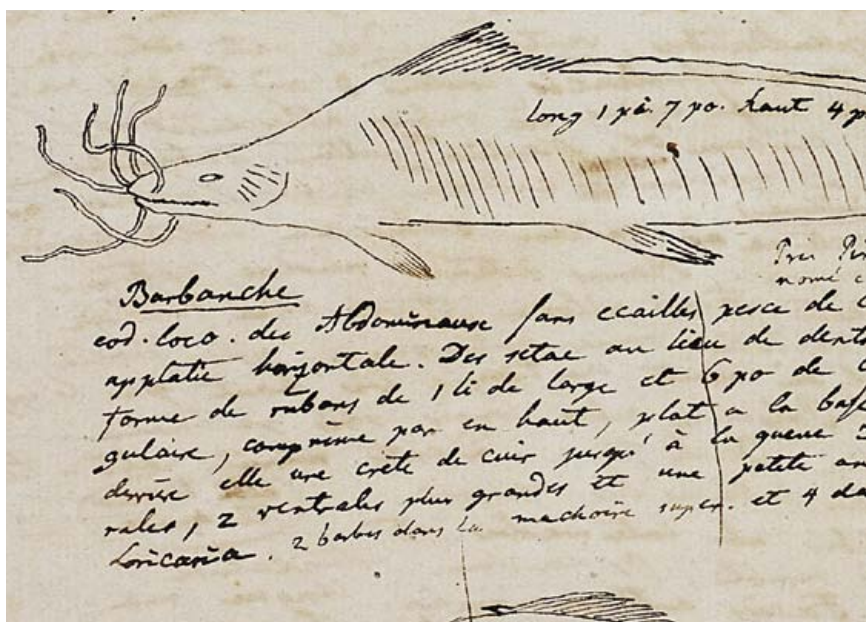 long 1 pi. 7 po. haut 4 p
Barbanche
nomé
eod. loco. des Abdominaux sans ecailles pesce de
applatie horizontale. Des setae au lieu de dents
forme de rubans de 1 li de large et 6 po de
gulaire, comprimé par en haut, plat a la base
derrière elle une crete de cuir jusqu'à la queue
rales, 2 ventrales plus grandes et une petite an
Loricaria. 2 barbes dans la machoire super. et 4 da